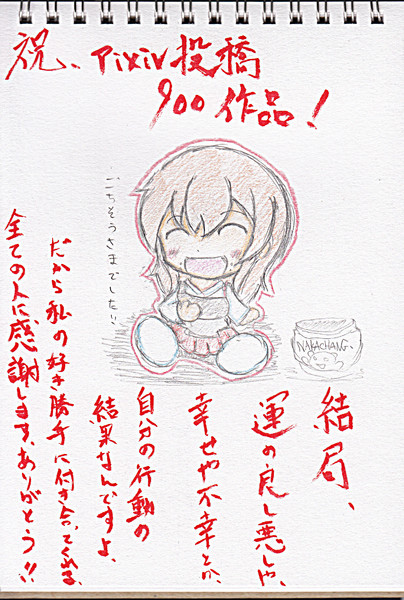 祝、Pixiv投稿
900作品！
ごちそうさまでした!!
NAKACHANG.
結局、
運の良し悪しや、
幸せや不幸とか、
自分の行動の
結果なんですよ、
だから私の好き勝手に付き合ってくれる、
全ての人に感謝します、ありがとう!!